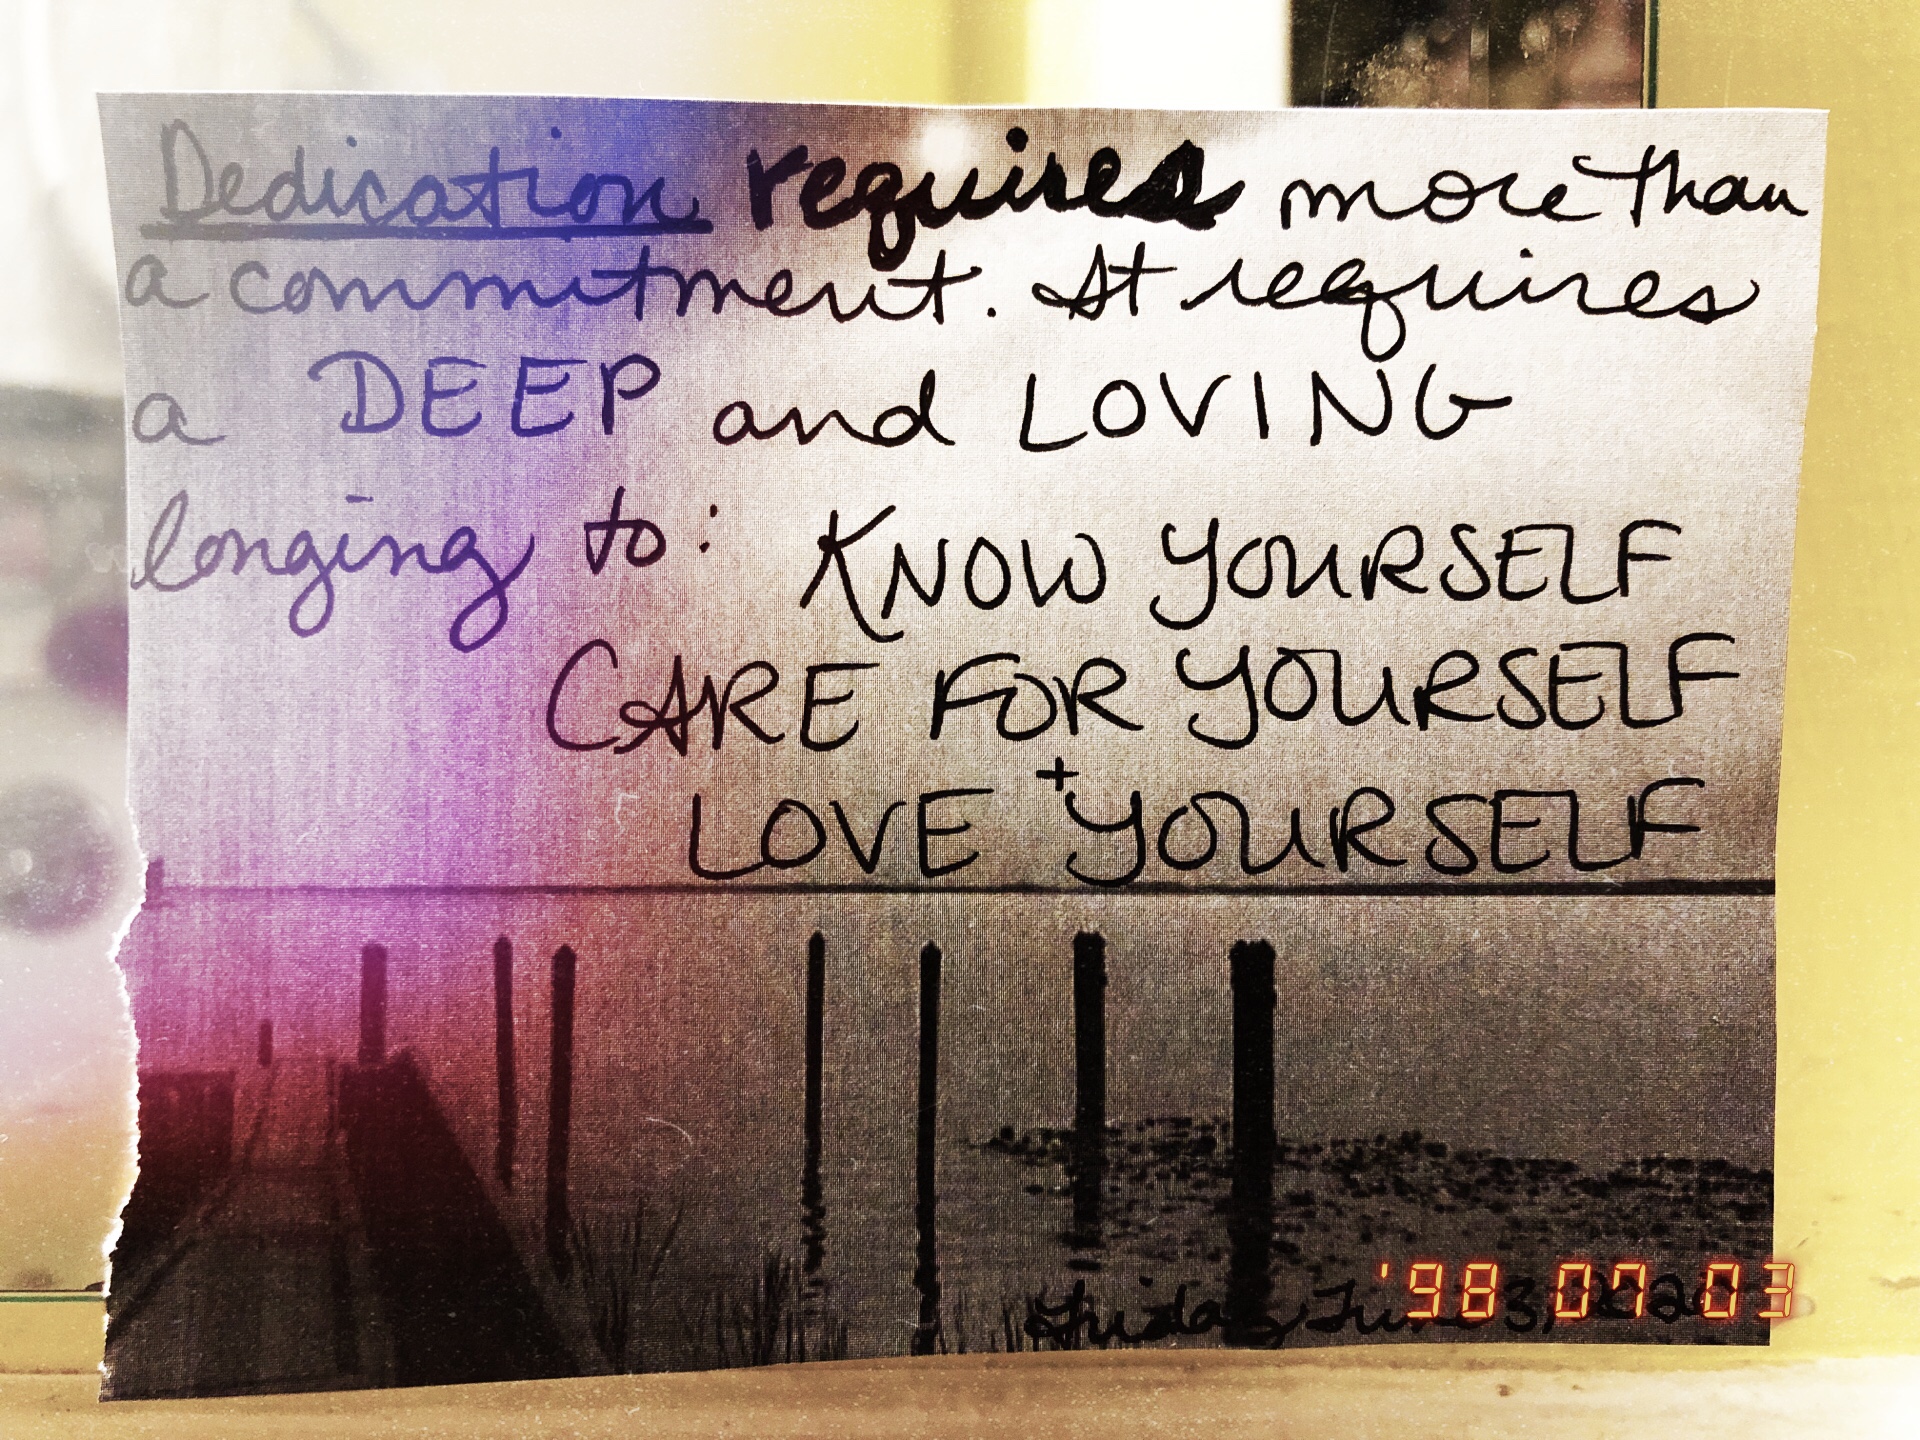 Dedication requires more than
a commitment. It requires
a DEEP and LOVING
longing to: KNOW YOURSELF
CARE FOR YOURSELF
+
LOVE YOURSELF
Friday 3, 2020
'98 07 03